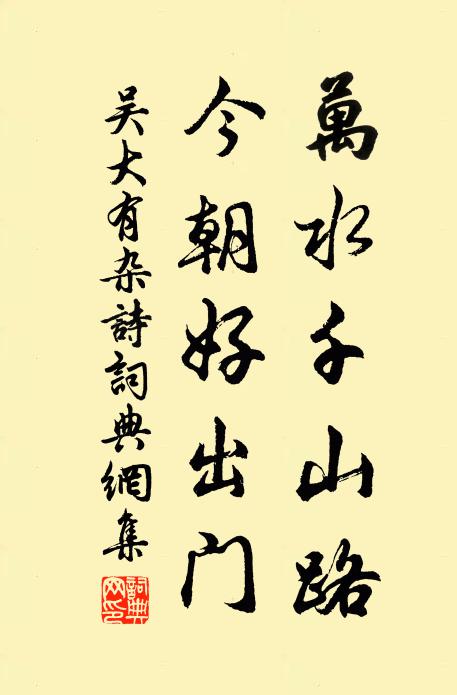 萬水千山路
今朝好出门
吴大有杂詩詞典網集
詞典网印